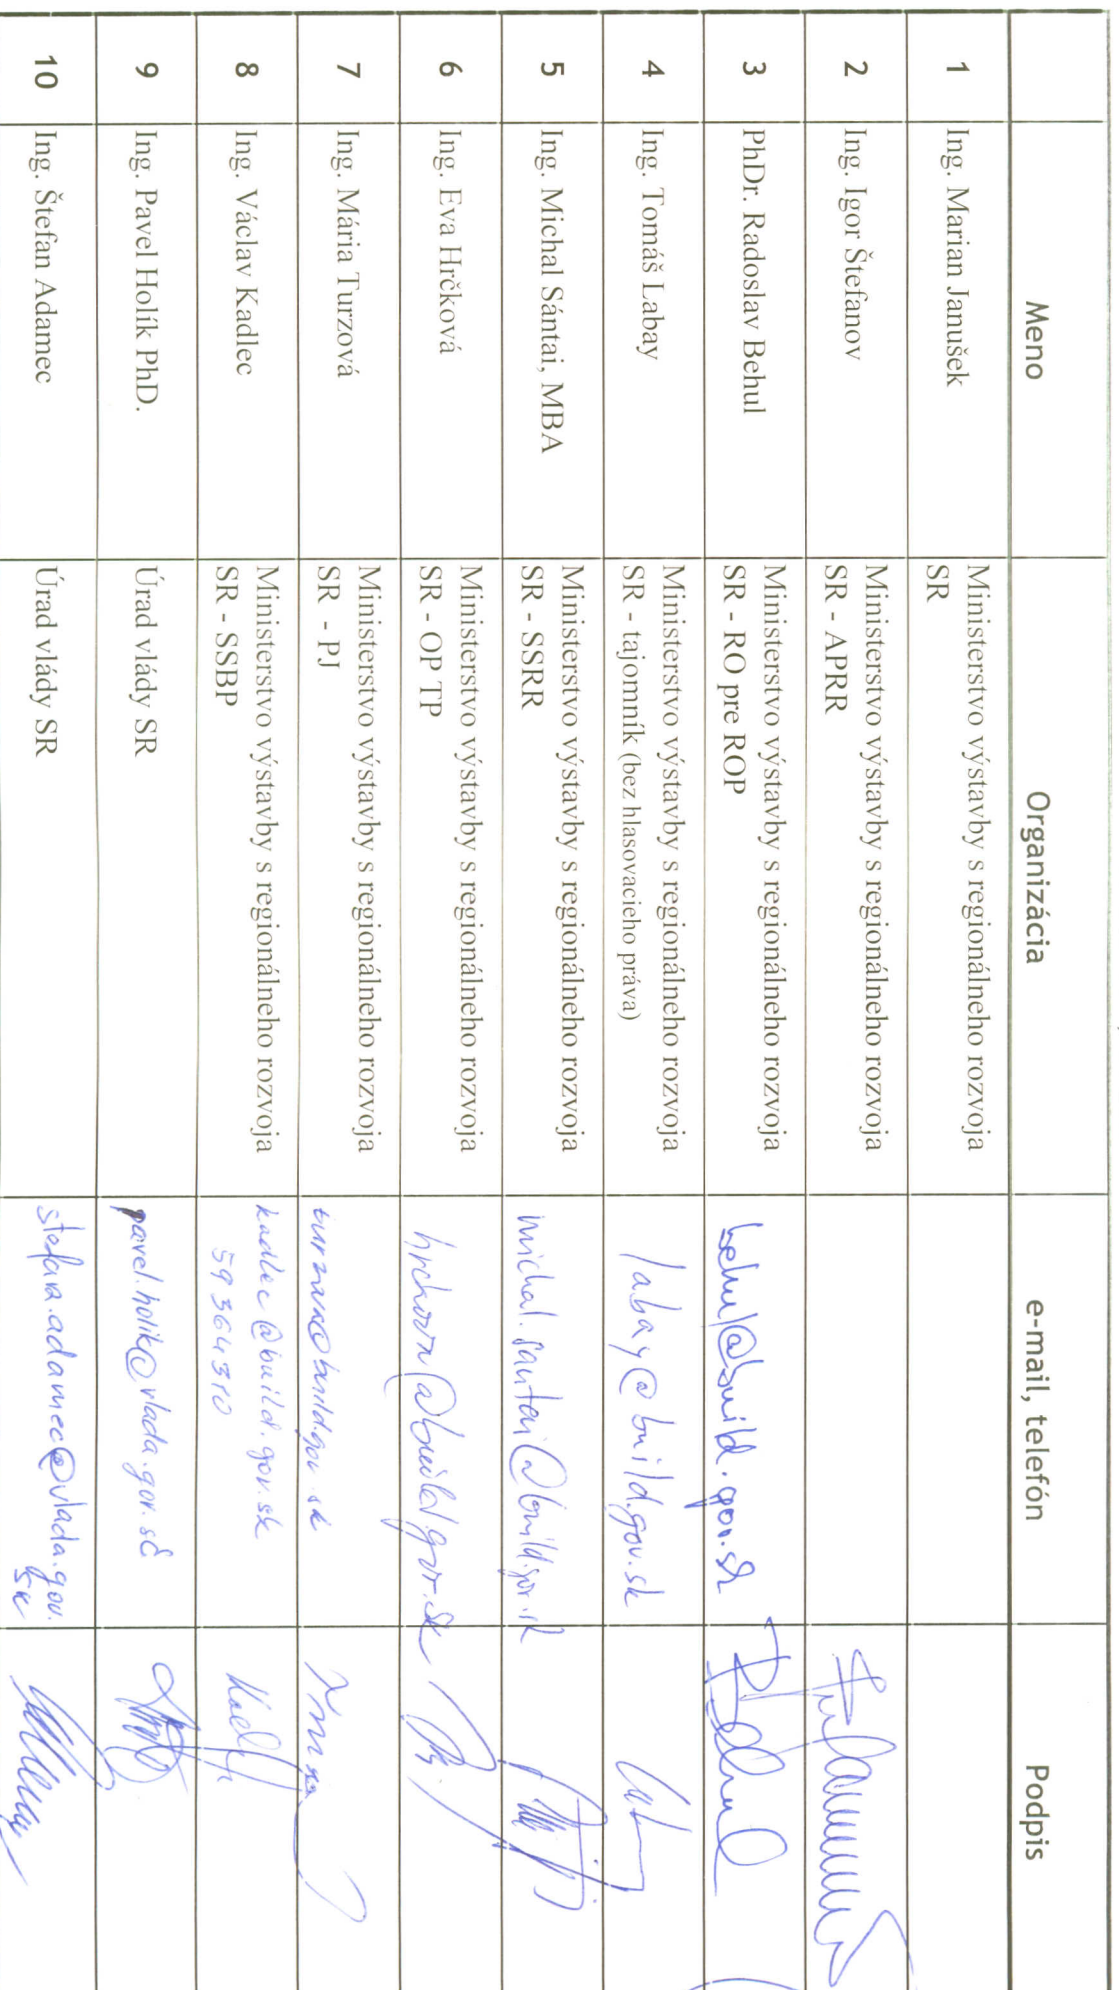 Meno Organizácia e-mail, telefón Podpis
1 Ing. Marian Janušek Ministerstvo výstavby s regionálneho rozvoja
SR
2 Ing. Igor Štefanov Ministerstvo výstavby s regionálneho rozvoja
SR - APRR
3 PhDr. Radoslav Behul Ministerstvo výstavby s regionálneho rozvoja behul@build.gov.sk
SR - RO pre ROP
4 Ing. Tomáš Labay Ministerstvo výstavby s regionálneho rozvoja labay@build.gov.sk
SR - tajomník (bez hlasovacieho práva)
5 Ing. Michal Sántai, MBA Ministerstvo výstavby s regionálneho rozvoja michal.santai@build.gov.sk
SR - SSRR
6 Ing. Eva Hrčková Ministerstvo výstavby s regionálneho rozvoja
SR - OP TP
7 Ing. Mária Turzová Ministerstvo výstavby s regionálneho rozvoja
SR - PJ
8 Ing. Václav Kadlec Ministerstvo výstavby s regionálneho rozvoja kadlec@build.gov.sk
SR - SSBP 59364310
9 Ing. Pavel Holík PhD. Úrad vlády SR
10 Ing. Štefan Adamec Úrad vlády SR stefan.adamec@vlada.gov.
sk